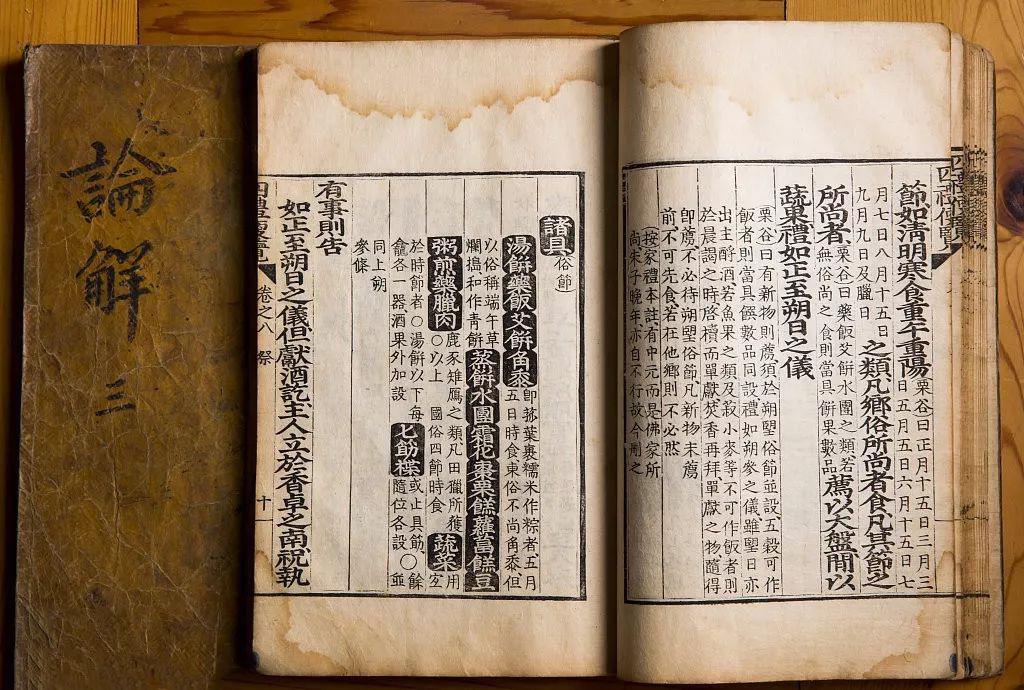 四禮便覽
節如清明寒食重午重陽栗谷曰正月十五日三月三日五月五日六月十五日七
月七日八月十五日九月九日及臘日之類凡鄉俗所尚者食凡其節之
所尚者栗谷曰藥飯艾餠水團之類若無俗尚之食則當具餠果數品薦以大盤間以
蔬果禮如正至朔日之儀
栗谷曰有新物則薦須於朔望俗節並設五穀可作
飯者則當具饌數品同設禮如朔參之儀雖望日亦
出主酹酒若魚果之類及菽小麥等不可作飯者則
於晨謁之時啓櫝而單獻焚香再拜單獻之物隨得
即薦不必待朔望俗節凡新物未薦
前不可先食若在他鄉則不必然
按家禮本註有中元而是佛家所
尚朱子晚年亦自不行故今刪之
諸具俗節
湯餠藥飯艾餠角黍即菰葉裹糯米作粽者五月五日時食東俗不尚角黍但
以俗稱端午草爛搗和作青餠蒸餠水團霜花棗栗餻蘿葍餻豆
粥煎藥臘肉鹿豕雉鴈之類凡田獵所獲〇以上國俗四節時食蔬菜用
於時節者〇湯餠以下每龕各一器酒果外加設匕筯楪或止具筯〇餘隨位各設並
同上朔參條
有事則告
如正至朔日之儀但獻酒訖主人立於香卓之南祝執
四禮便覽 卷之八 祭 十一
論解 三